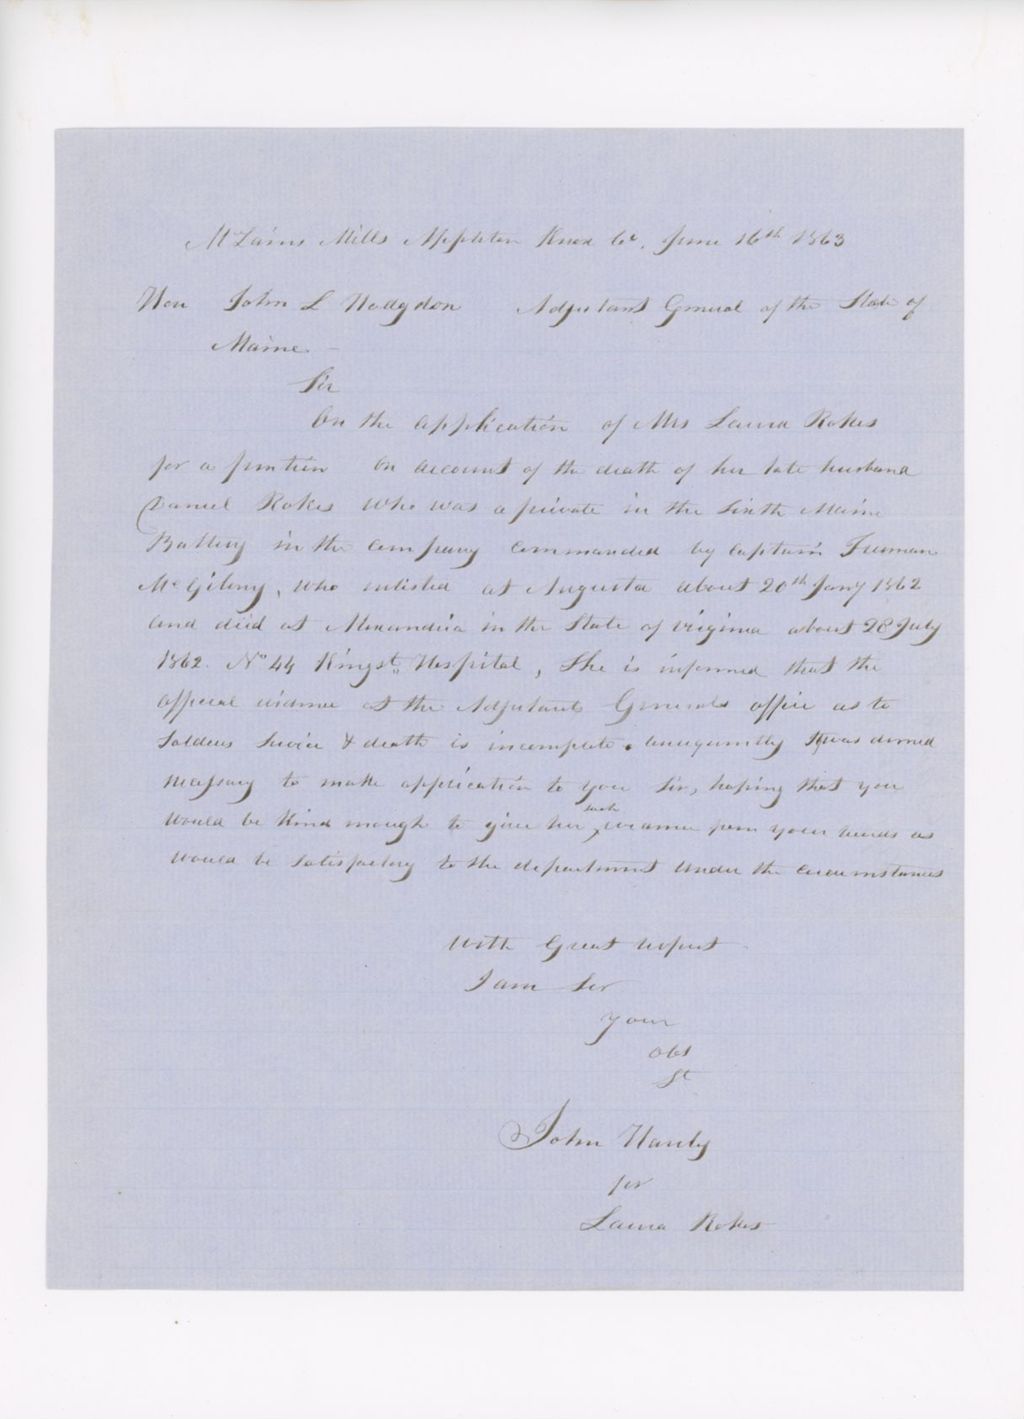 McLains Mills Appleton Knox Co. June 16th 1863
Hon John L Hodgdon Adjutant General of the State of
Maine.
Sir
On the application of Mrs Laura Rokes
for a pention on account of the death of her late husband
Daniel Rokes who was a private in the Sixth Maine
Battery in the company commanded by Captain Freeman
McGilvry, who enlisted at Augusta about 20th Jany 1862
and died at Alexandria in the State of virginia about 28 July
1862. No 44 King st. Hospital, She is informed that the
official evidence at the Adjutant Generals office as to
Soldiers Service & death is incomplete. Consequently It was deemed
necessary to make application to you Sir, hoping that you
would be kind enough to give her such evidence from your records as
would be satisfactory to the department under the circumstances
With Great respect
I am Sir
your
obt
St
John Hanly
for
Laura Rokes